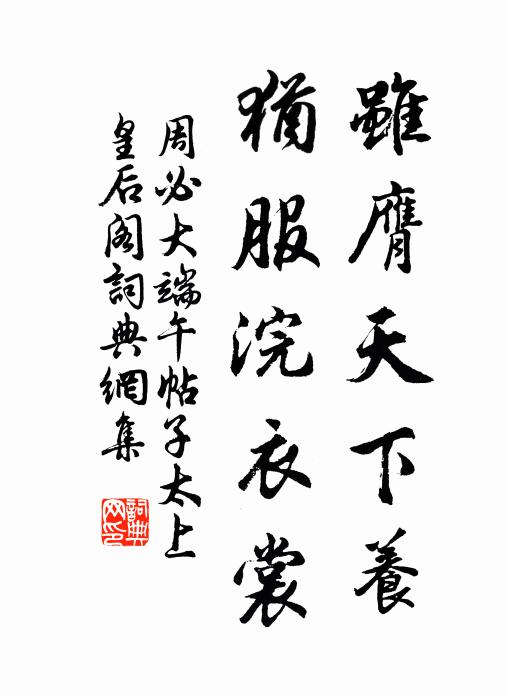 雖膺天下養
猶服浣衣裳
周必大端午帖子太上
皇后阁詞典網集
詞典
网印